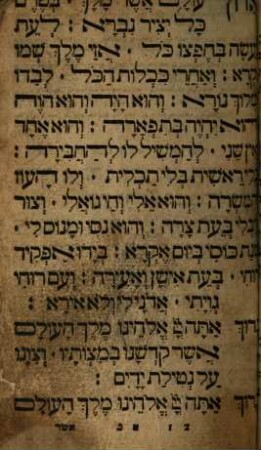 עולם אשר מלך · בטרם
כל יציר נברא : לעת
נעשה בחפצו כל · אזי מלך שמו
נקרא : ואחרי ככלות הכל · לבדו
ימלוך נורא : והוא היה והוא הוה
והוא יהיה בתפארה : והוא אחד
ואין שני · להמשיל לו להחבירה :
בלי ראשית בלי תכלית · ולו העוז
והמשרה : והוא אלי וחי גואלי · וצור
חבלי בעת צרה : והוא נסי ומנוס לי ·
מנת כוסי ביום אקרא : בידו אפקיד
רוחי · בעת אישן ואעירה : ועם רוחי
גויתי · אדני לי ולא אירא :
ברוך אתה יי אלהינו מלך העולם
אשר קדשנו במצותיו · וצונו
על נטילת ידים :
ברוך אתה יי אלהינו מלך העולם
אשר